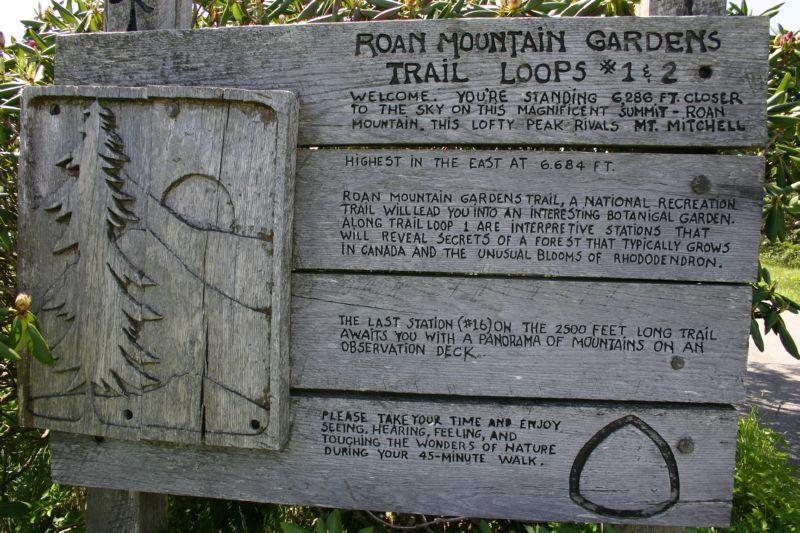 ROAN MOUNTAIN GARDENS
TRAIL LOOPS #1 & 2
WELCOME. YOU'RE STANDING 6,286 FT. CLOSER
TO THE SKY ON THIS MAGNIFICENT SUMMIT - ROAN
MOUNTAIN. THIS LOFTY PEAK RIVALS MT. MITCHELL
HIGHEST IN THE EAST AT 6,684 FT.
ROAN MOUNTAIN GARDENS TRAIL, A NATIONAL RECREATION
TRAIL WILL LEAD YOU INTO AN INTERESTING BOTANICAL GARDEN.
ALONG TRAIL LOOP 1 ARE INTERPRETIVE STATIONS THAT
WILL REVEAL SECRETS OF A FOREST THAT TYPICALLY GROWS
IN CANADA AND THE UNUSUAL BLOOMS OF RHODODENDRON.
THE LAST STATION (#16) ON THE 2500 FEET LONG TRAIL
AWAITS YOU WITH A PANORAMA OF MOUNTAINS ON AN
OBSERVATION DECK.
PLEASE TAKE YOUR TIME AND ENJOY
SEEING, HEARING, FEELING, AND
TOUCHING THE WONDERS OF NATURE
DURING YOUR 45-MINUTE WALK.